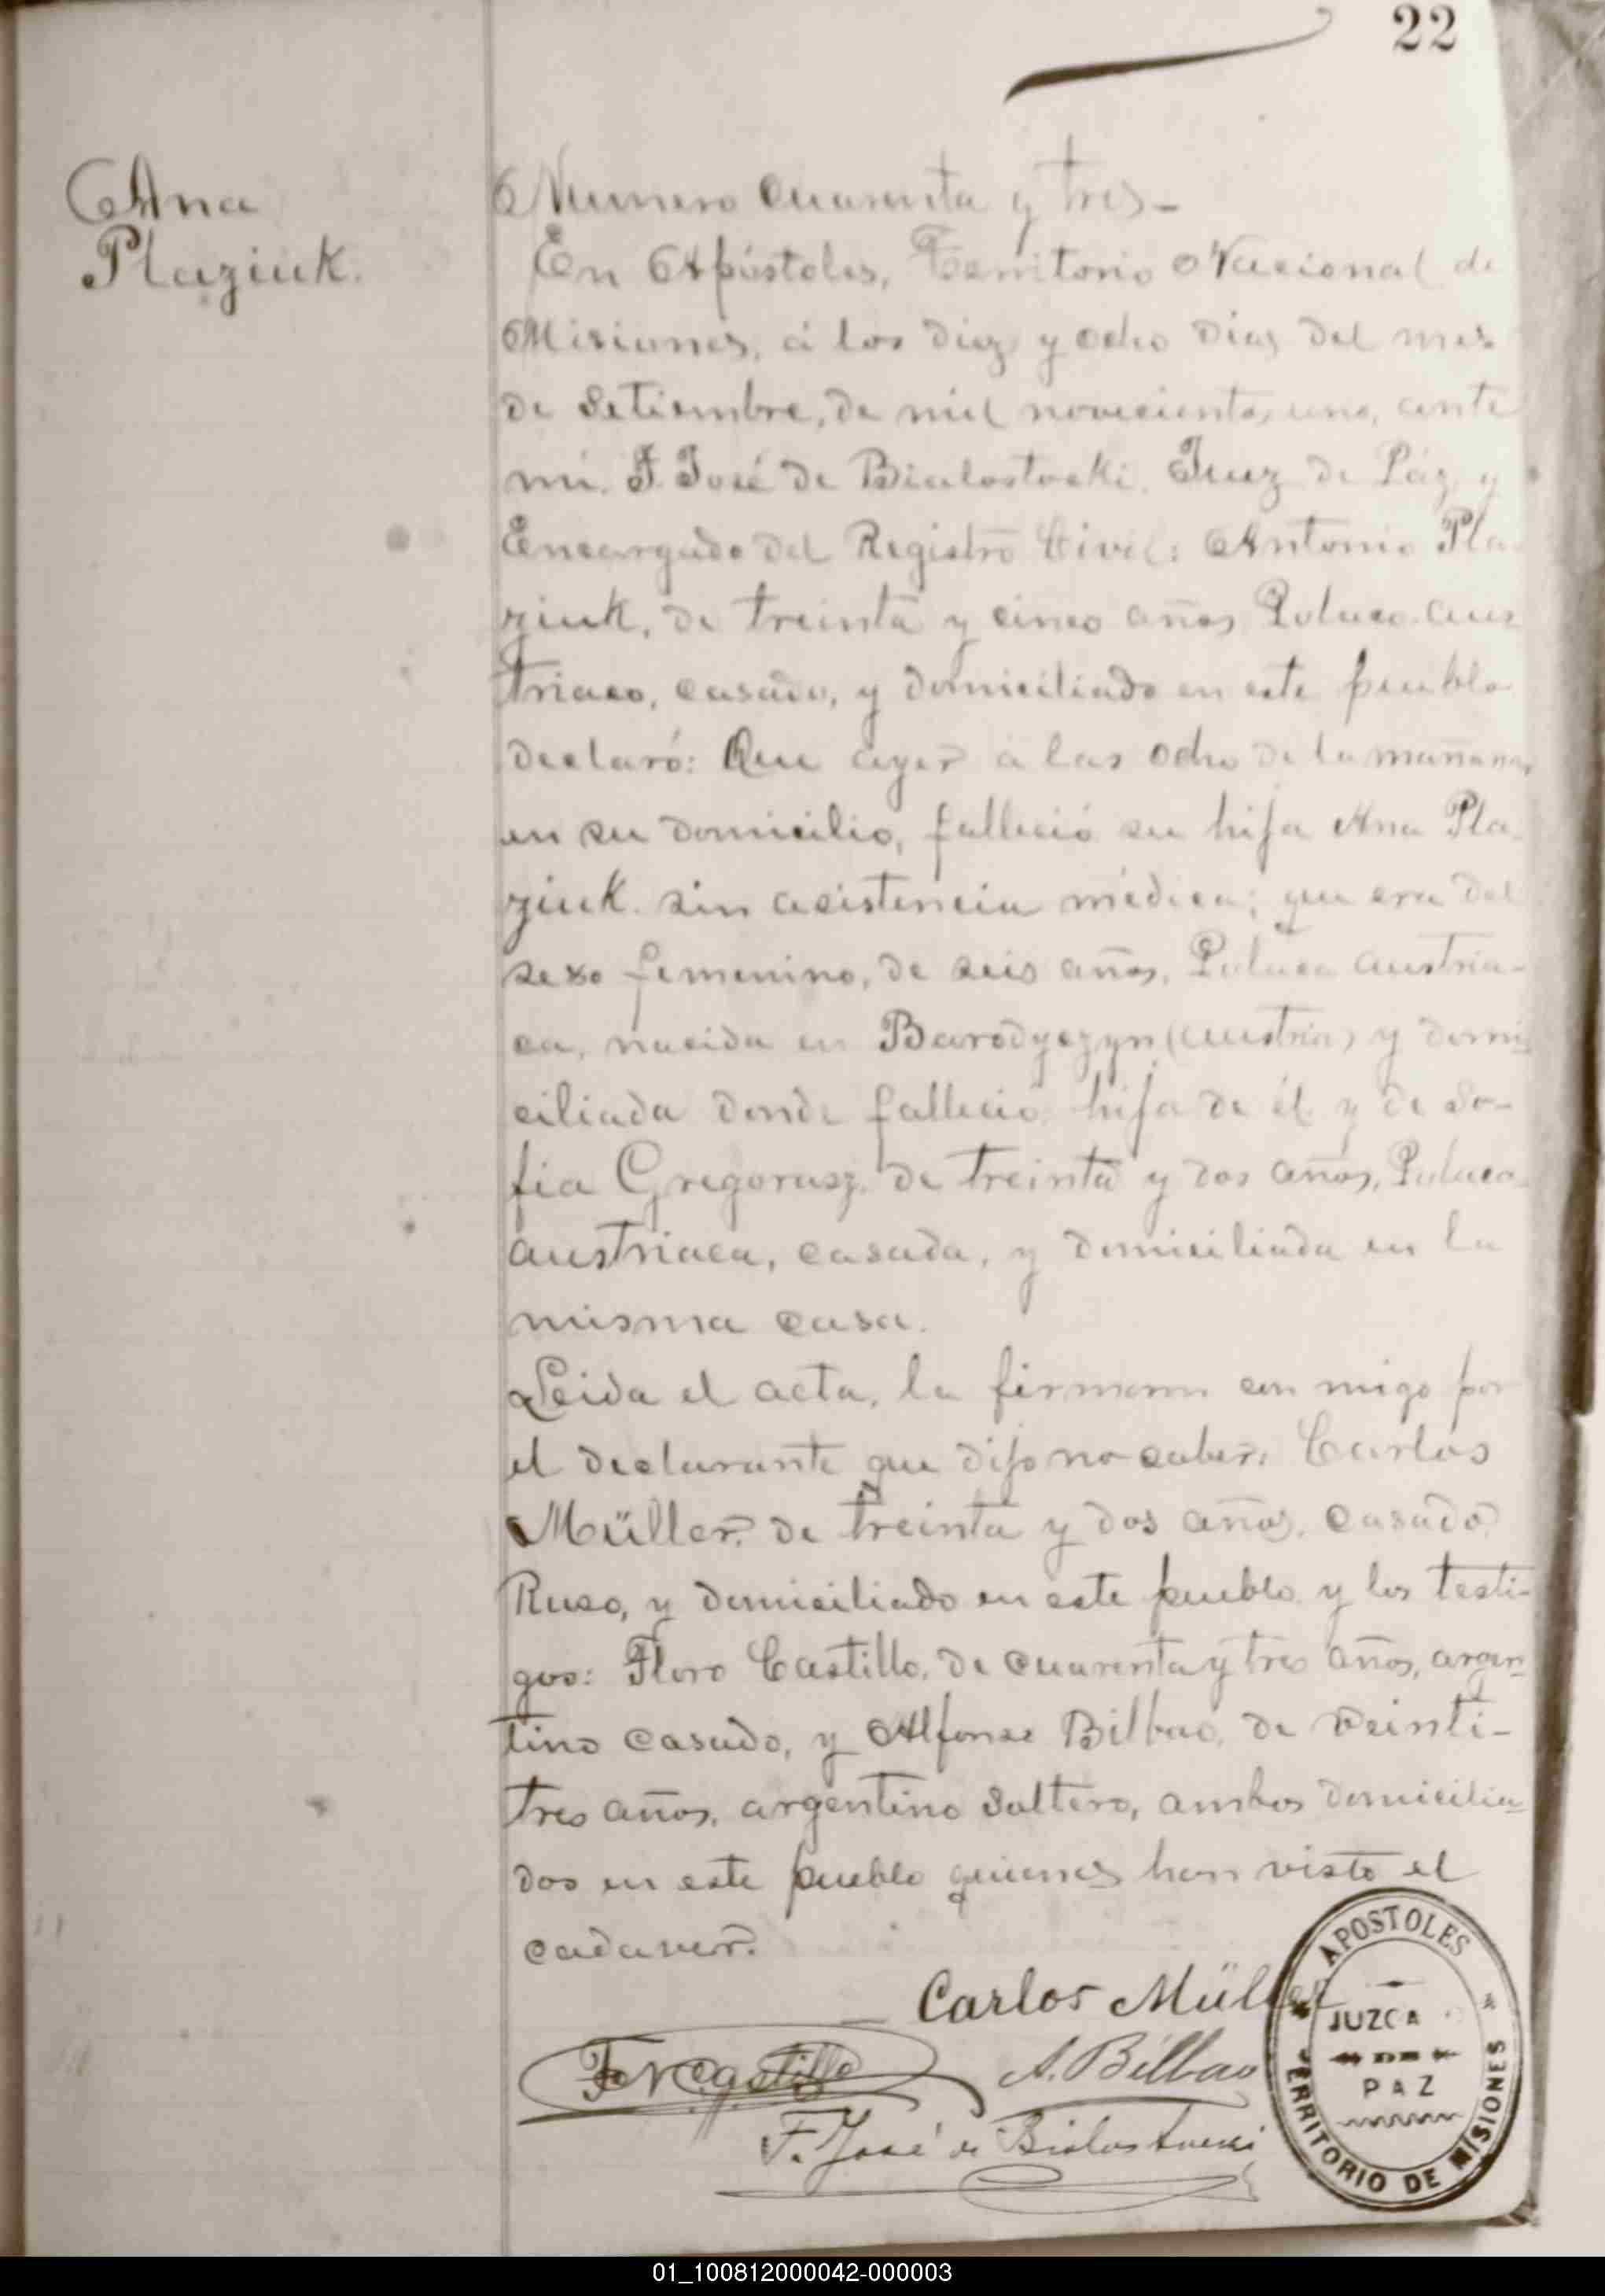 22
Ana
Plaziuk.
Numero cuarenta y tres_
En Apóstoles, Territorio Nacional de
Misiones, á los diez y ocho dias del mes
de Setiembre, de mil novecientos uno, ante
mí. F. José de Bialostocki. Juez de Páz y
Encargado del Registro Civil: Antonio Pla-
ziuk, de treinta y cinco años Polaco aus
triaco, casado, y domiciliado en este pueblo
declaró: Que ayer á las ocho de la mañana,
en su domicilio, falleció su hija Ana Pla-
ziuk. sin asistencia médica; que era del
sexo femenino, de seis años, Polaca austria-
ca, nacida en Barodyczyn (Austria) y domi-
ciliada donde falleció, hija de él y de So-
fia Gregorasz. de treinta y dos años, Polaca
austriaca, casada, y domiciliada en la
misma casa.
Leida el acta, la firmaron con migo por
el declarante que dijo no saber: Carlos
Müller. de treinta y dos años, casado,
Ruso, y domiciliado en este pueblo y los testi-
gos: Floro Castillo, de cuarenta y tres años, argen-
tino casado, y Alfonso Bilbao, de veinti-
tres años, argentino soltero, ambos domicilia-
dos en este pueblo quienes han visto el
cadaver.
Carlos Müller
Castillo
A. Bilbao
F. José de Bialostocki
APOSTOLES
JUZGADO
DE
PAZ
TERRITORIO DE MISIONES
01_100812000042-000003